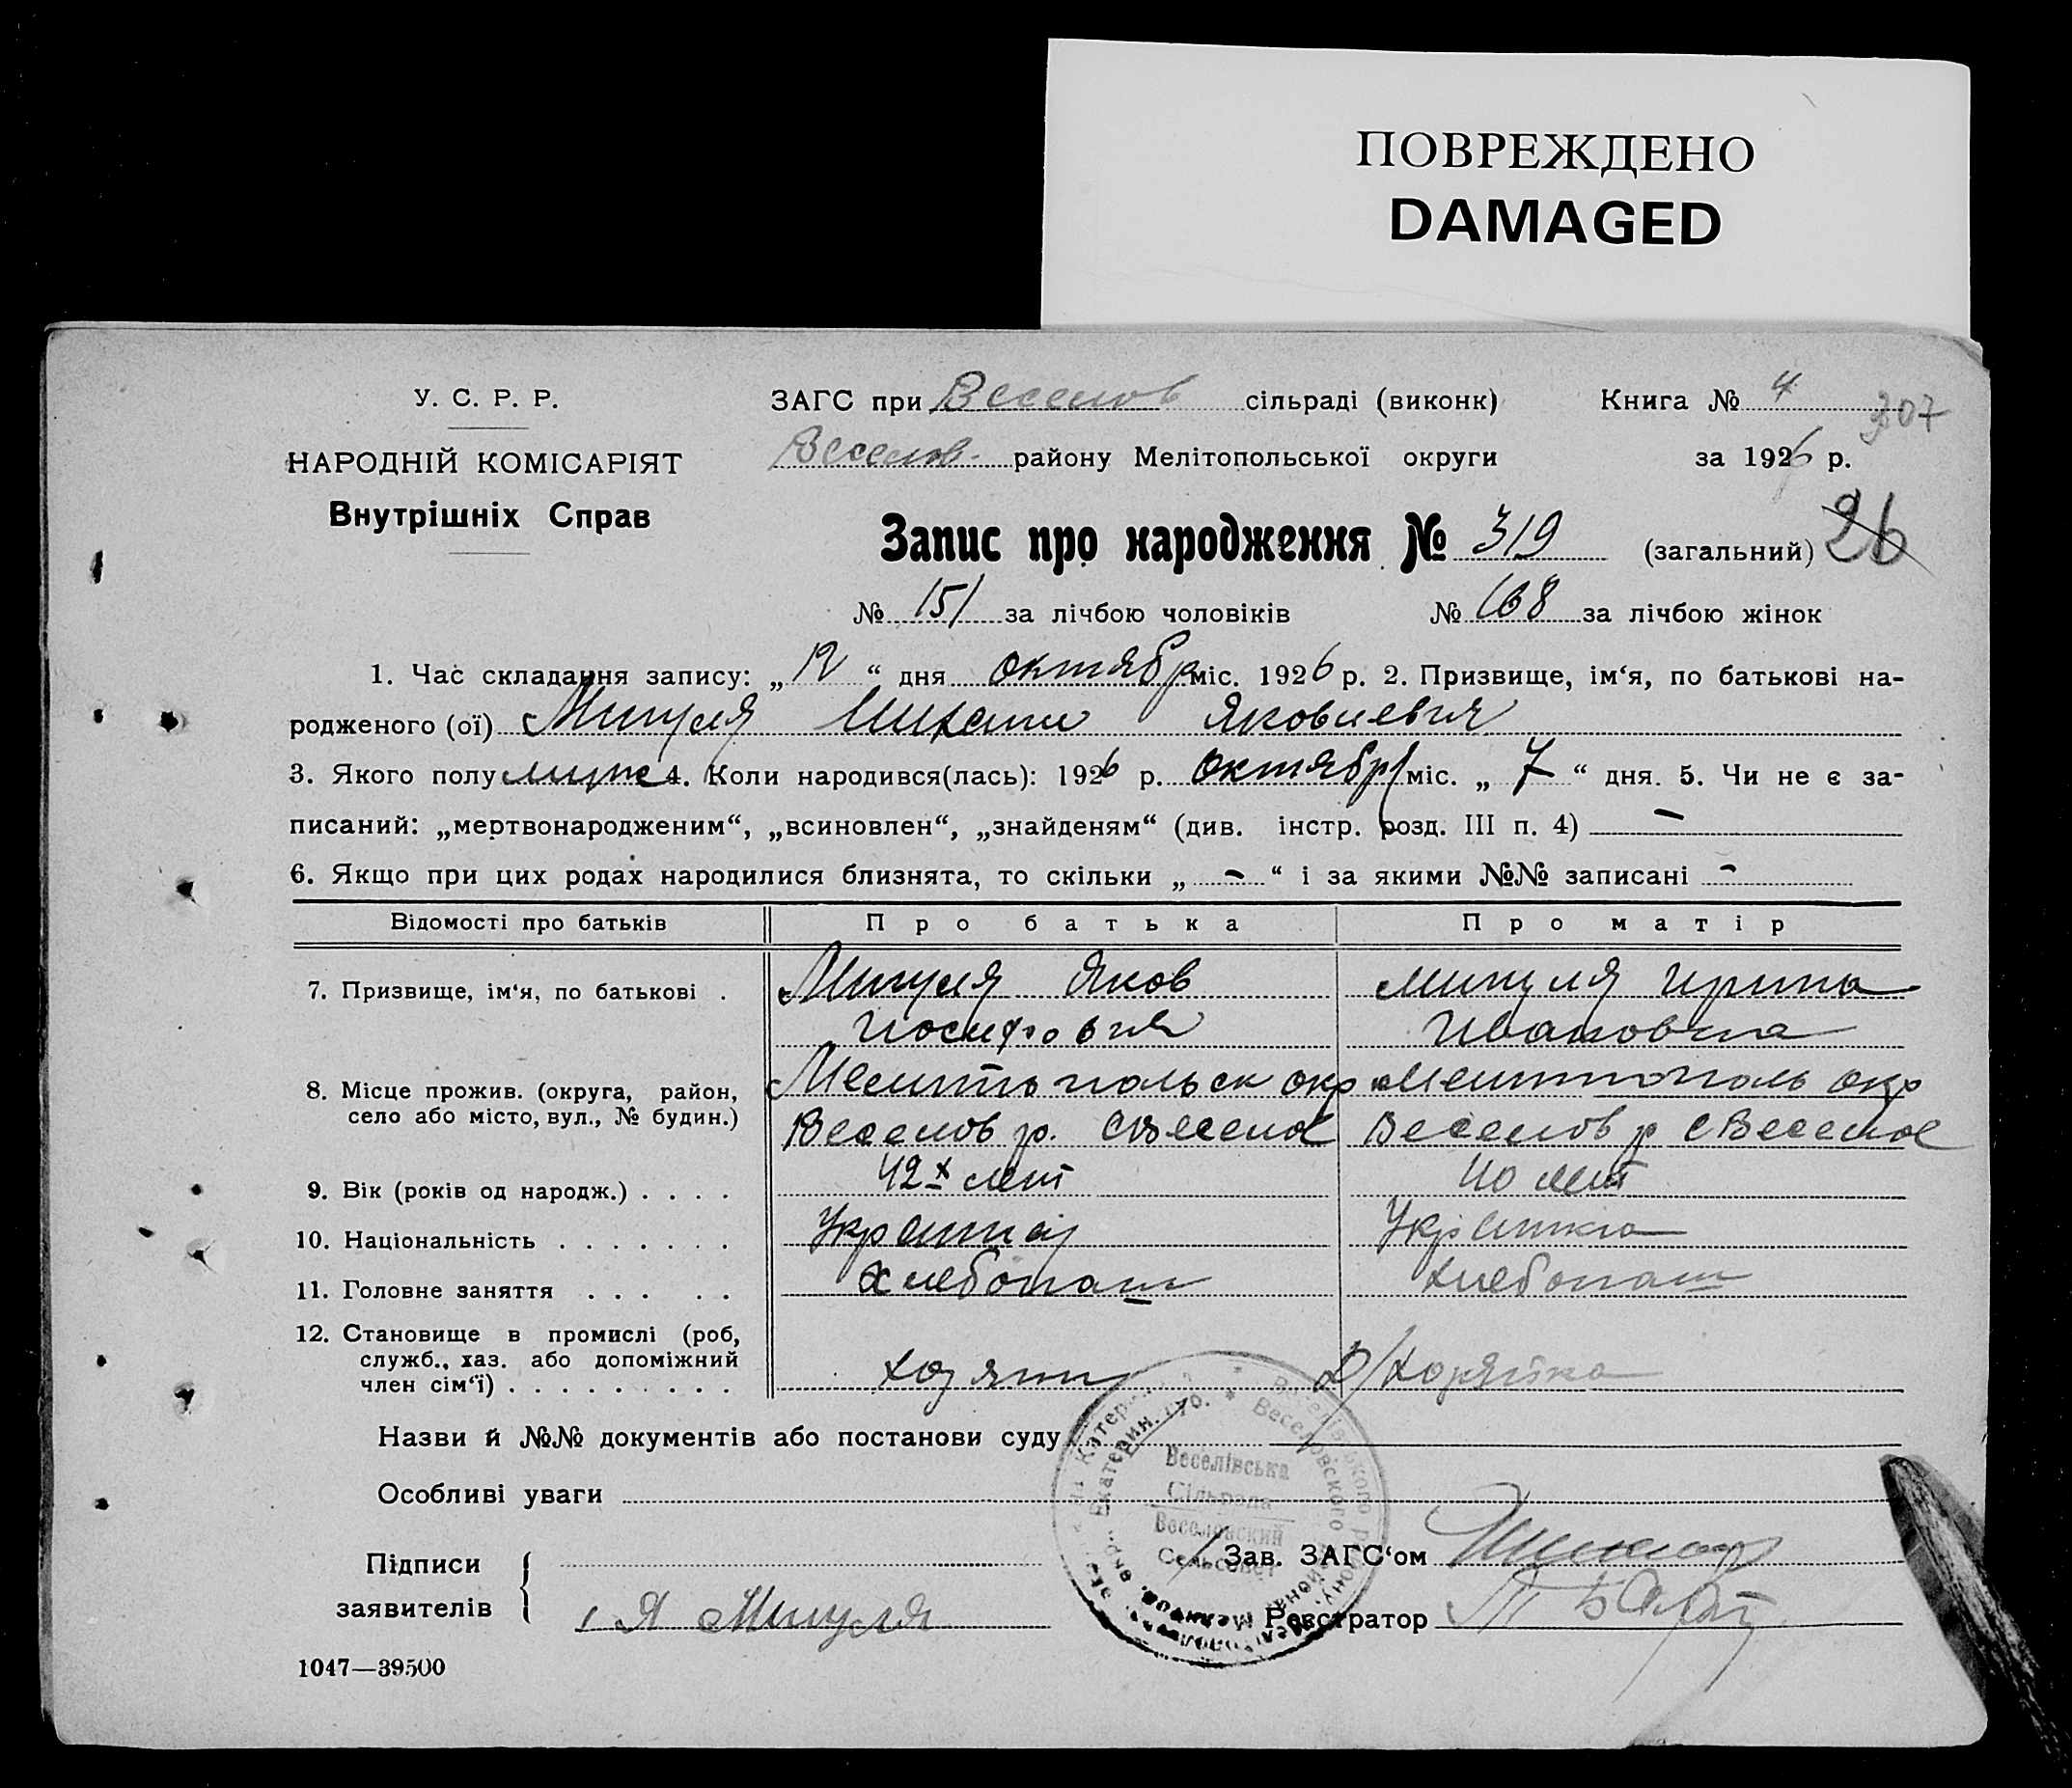 ПОВРЕЖДЕНО
DAMAGED
У. С. Р. Р.
НАРОДНІЙ КОМІСАРІЯТ
Внутрішніх Справ
ЗАГС при Веселов сільраді (виконк) Книга № 4
307
Веселов. району Мелітопольської округи за 1926 р.
Запис про народження № 319 (загальний) 26
№ 151 за лічбою чоловіків № 168 за лічбою жінок
1. Час складання запису: „12“ дня октября міс. 1926 р. 2. Призвище, ім‘я, по батькові на-
родженого (ої) Мигуля Михаил Яковлевич
3. Якого полу муж 4. Коли народився(лась): 1926 р. октября міс. „7“ дня. 5. Чи не є за-
писаний: „мертвонародженим“, „всиновлен“, „знайденям“ (див. інстр. розд. III п. 4) —
6. Якщо при цих родах народилися близнята, то скільки „-“ і за якими №№ записані -
Відомості про батьків Про батька Про матір
7. Призвище, ім‘я, по батькові . Мигуля Яков Мигуля Ирина
Иосифович Ивановна
8. Місце прожив. (округа, район, Мелитопольск окр Мелитополь окр
село або місто, вул., № будин.) Веселов р. с Веселое Веселов р с Веселое
9. Вік (років од народж.) . . . . 42х лет 40 лет
10. Національність . . . . . . . Украинец Украинка
11. Головне заняття . . . . . Хлебопаш Хлебопаш
12. Становище в промислі (роб,
служб., хаз. або допоміжний
член сім‘ї) . . . . . . . . . хозяин Д/хозяйка
Назви й №№ документів або постанови суду
Особливі уваги
Веселівська
Сільрада
Веселовский
Сельсовет
Підписи Зав. ЗАГС‘ом
заявителів Я Мигуля Реєстратор
1047—39500